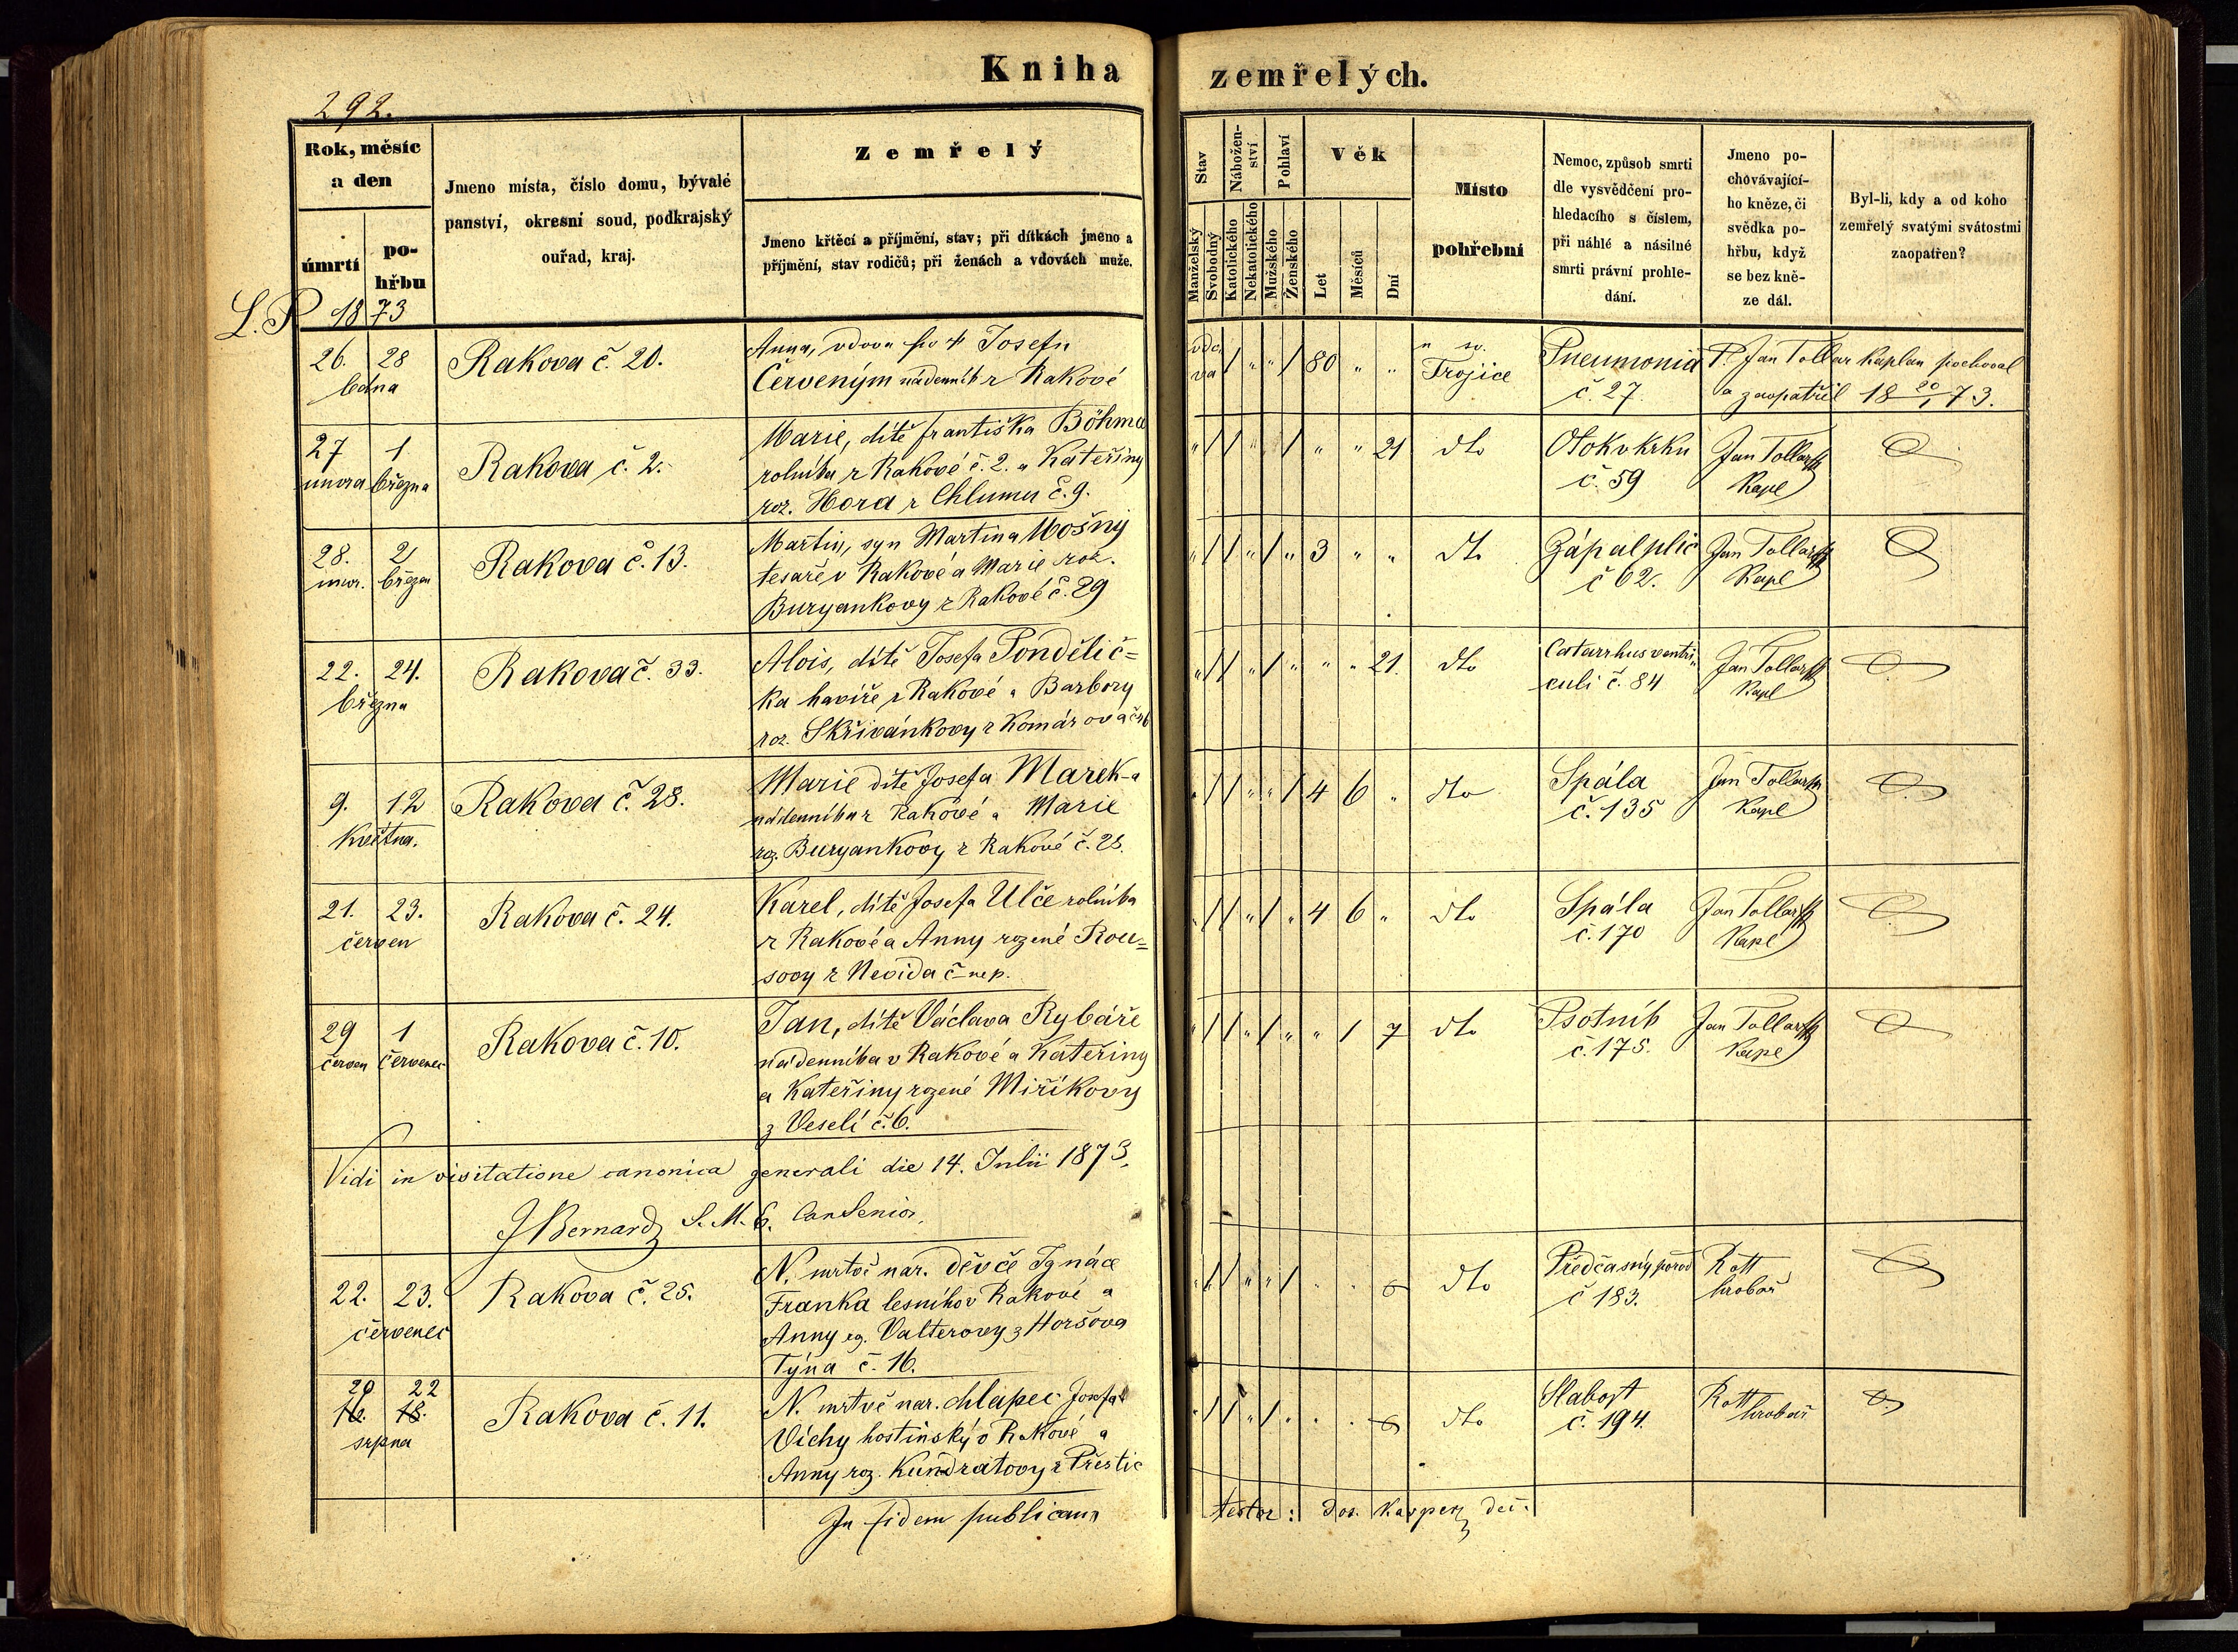 Kniha zemřelých.
292.
Rok, měsíc
a den
úmrtí
po-
hřbu
Jmeno místa, číslo domu, bývalé
panství, okresní soud, podkrajský
ouřad, kraj.
Zemřelý
Jmeno křtěcí a příjmění, stav; při dítkách jmeno a
příjmění, stav rodičů; při ženách a vdovách muže.
Stav
Manželský
Svobodný
Nábožen-
ství
Katolického
Nekatolického
Pohlaví
Mužského
Ženského
Věk
Let
Měsíců
Dní
Místo
pohřební
Nemoc, způsob smrti
dle vysvědčení pro-
hledacího s číslem,
při náhlé a násilné
smrti právní prohle-
dání.
Jmeno po-
chovávající-
ho kněze, či
svědka po-
hřbu, když
se bez kně-
ze dál.
Byl-li, kdy a od koho
zemřelý svatými svátostmi
zaopatřen?
L.P. 1873
26. 28
ledna
Rakova č. 20.
Anna, vdova po † Josefu
Červeným nádenník z Rakové
vdo,
va / " " / 80 " "
u sv.
Trojice
Pneumonia
č. 27.
P. Jan Tollar Kaplan pochoval
a zaopatřil 18 20/1 73.
27 1
února března
Rakova č. 2.
Marie, dítě františka Böhma
rolníka z Rakové č. 2. a Kateřiny
roz. Hora z Chlumu č. 9.
" / / " " / " " 21
dto
Otok v krku
č. 59
Jan Tollar
Kapl
28. 2
únor. březen
Rakova č. 13.
Martin, syn Martina Mošny
tesaře v Rakové a Marie roz.
Buryankovy z Rakové č. 29
" / / " / " 3 " "
dto
Zápal plic
č 62.
Jan Tollar
Kapl
22. 24.
března
Rakova č. 33.
Alois, dítě Josefa Pondělíč=
ka havíře z Rakové a Barbory
roz. Skřivánkovy z Komárova
" / / " / " " " 21.
dto
Catarrhus ventri,,
culi č. 84
Jan Tollar
Kapl
9. 12
května.
Rakova č. 28.
Marie dítě Josefa Marek-a
nádenníka z Rakové a Marie
roz. Buryankovy z Rakové č. 28.
" / / " " / 4 6 "
dto
Spála
č. 135
Jan Tollar
Kapl
21. 23.
červen
Rakova č. 24.
Karel, dítě Josefa Ulče rolníka
z Rakové a Anny rozené Rou=
sovy z Nevida č nep.
" / / " / " 4 6 "
dto
Spála
č. 170
Jan Tollar
Kapl
29 1
červen červenec
Rakova č. 10.
Jan, dítě Václava Rybáře
nádenníka v Rakové a Kateřiny
a Kateřiny rozené Miříkovy
z Veselí č. 6.
" / / " / " " 1 7
dto
Psotník
č. 175.
Jan Tollar
Kapl
Vidi in visitatione canonica generali die 14. Julii 1873.
J Bernard S. M. C. Can Senior.
22. 23.
červenec
Rakova č. 25.
N. mrtvě nar. děvče Ignáce
Franka lesního v Rakové a
Anny roz. Valterovy z Horšova
Týna č. 16.
" / / " " / . .
dto
Předčasný porod
č 183.
Rott
hrobař
20 22
16. 18.
srpna
Rakova č. 11.
N. mrtvě nar. chlapec Josefa
Víchy hostinský v Rakové a
Anny roz. Kundratovy z Přeštic
" / / " / " . .
dto
Slabost
č. 194.
Rott
hrobař
In fidem publicam
testor: Jos. Kasper děč.